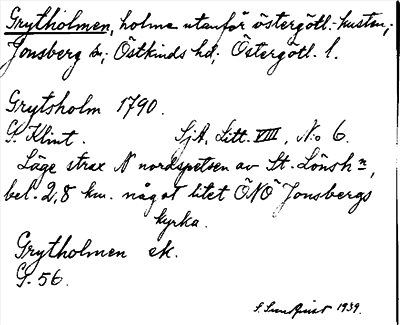 Grytholmen, holme utanför östergötl. kusten;
Jonsberg sn; Östkinds hd; Östergötl. l.
Grytsholm 1790.
G. Klint. SjA, Litt. VIII, No 6.
Läge strax N nordspetsen av St. Lönshn,
bel. 2,8 km. något litet ÖNÖ Jonsbergs
kyrka.
Grytholmen ek.
G. 56.
S. Sundquist 1939.